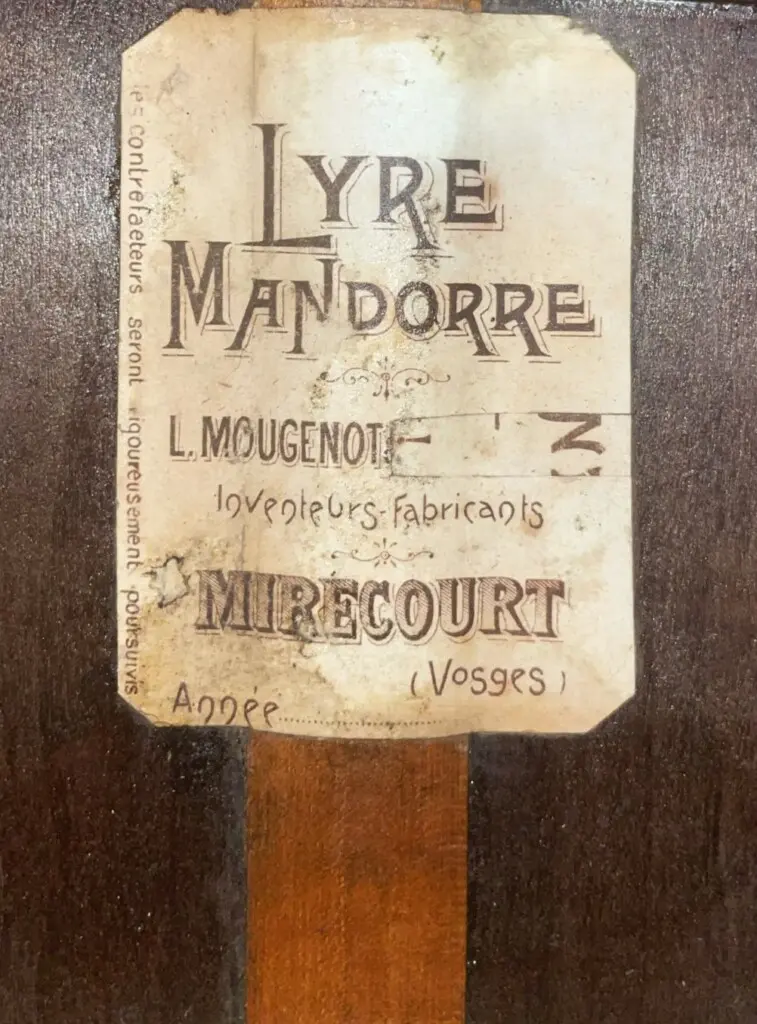 LYRE
MANDORRE
L. MOUGENOT
Inventeurs-Fabricants
MIRECOURT
(Vosges)
Année
les contrefaeteurs seront rigoureusement poursuivis